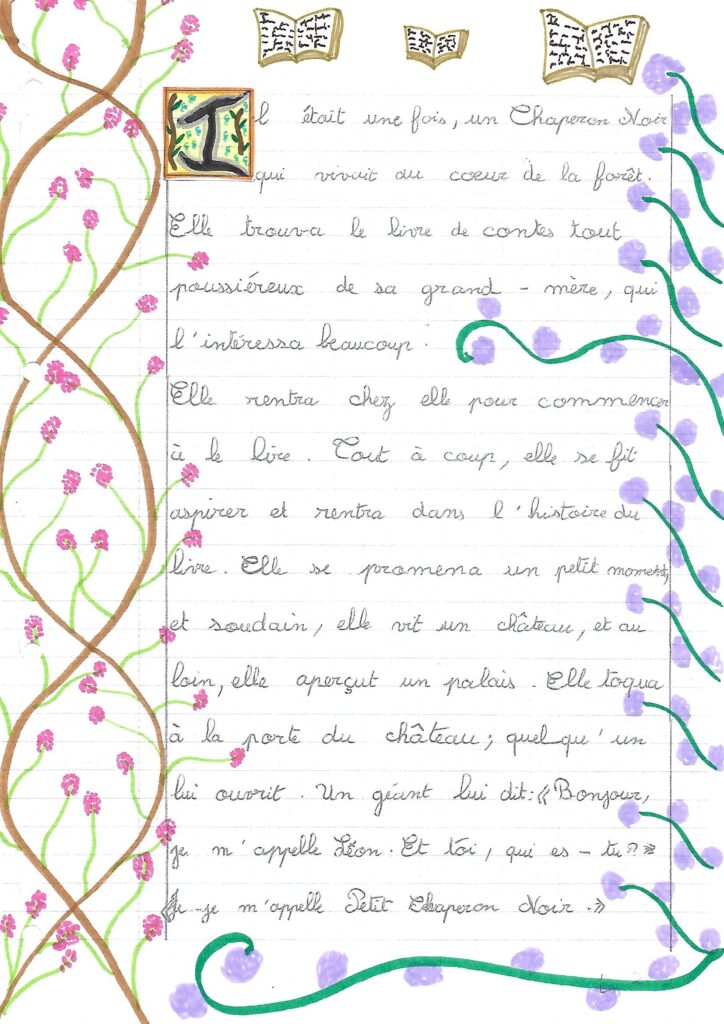 Il était une fois, un Chaperon Noir
qui vivait au coeur de la forêt.
Elle trouva le livre de contes tout
poussiéreux de sa grand-mère, qui
l'intéressa beaucoup.
Elle rentra chez elle pour commencer
à le lire. Tout à coup, elle se fit
aspirer et rentra dans l'histoire du
livre. Elle se promena un petit moment,
et soudain, elle vit un château, et au
loin, elle aperçut un palais. Elle toqua
à la porte du château; quelqu'un
lui ouvrit. Un géant lui dit: « Bonjour,
je m'appelle Léon. Et toi, qui es-tu? »
« Je-je m'appelle Petit Chaperon Noir. »